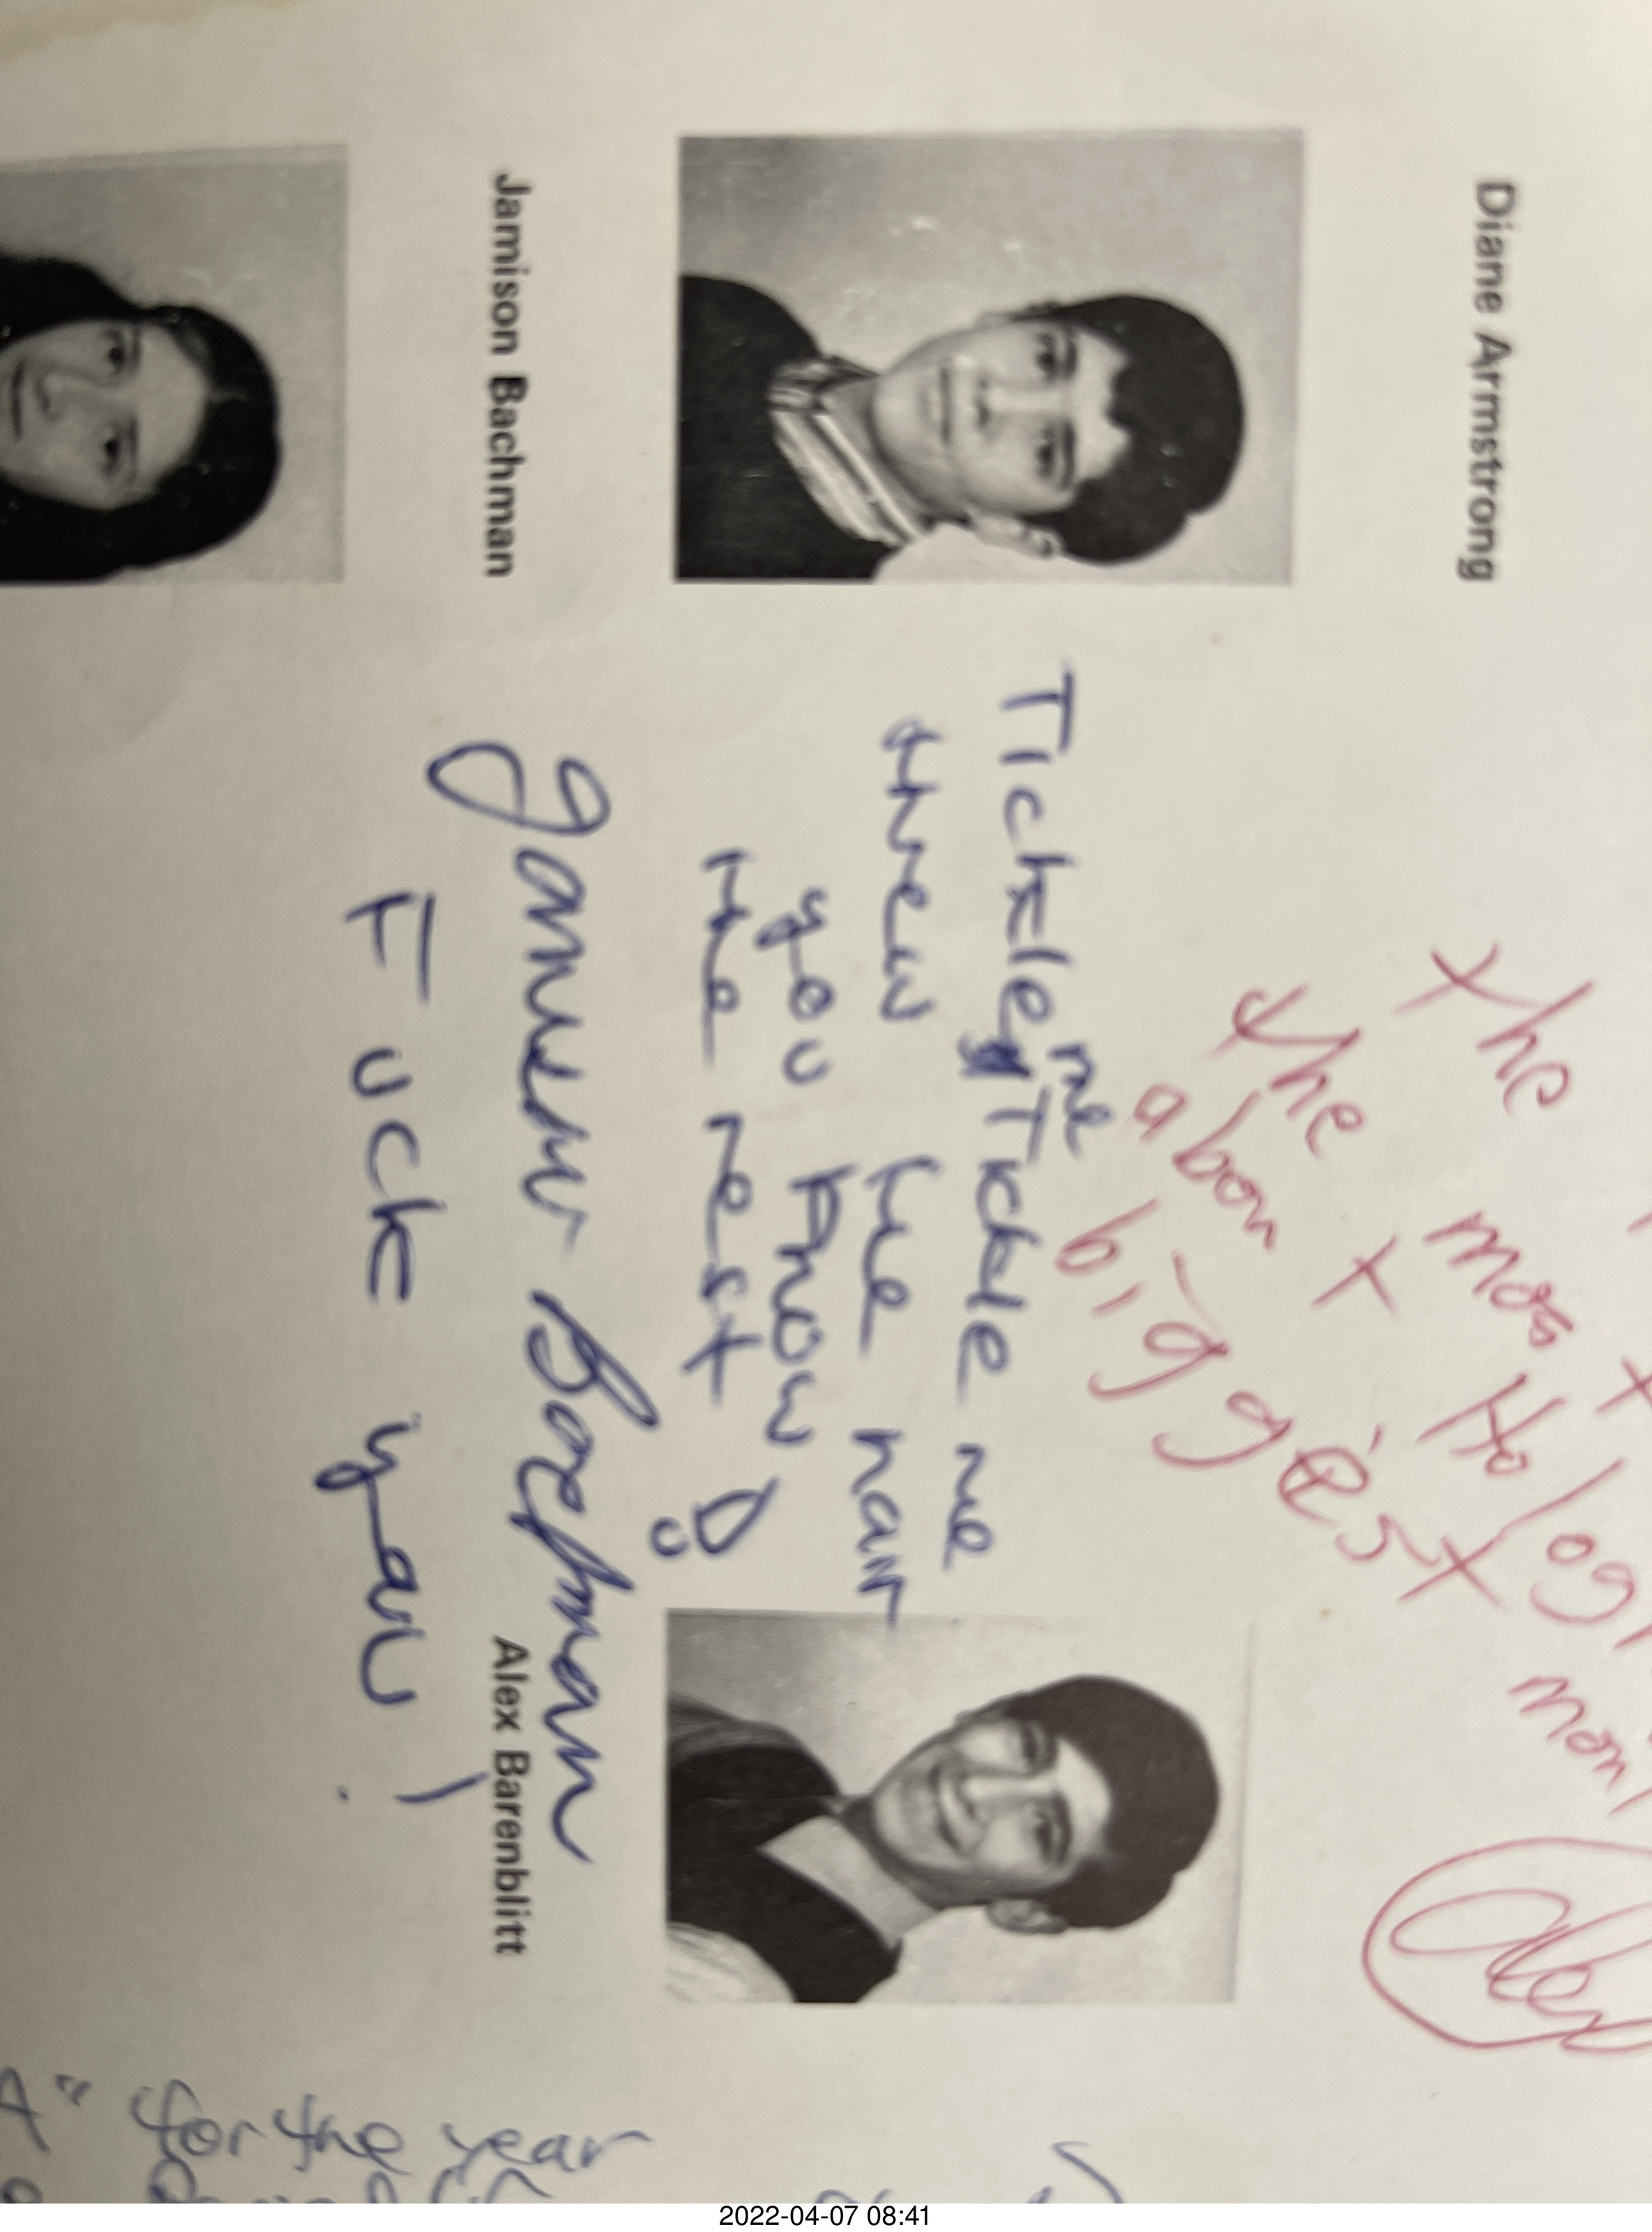 Diane Armstrong
the
the most
about Holog
biggest
Tickle me Tickle me
threw the hair
you know
the rest
Jamison Bachman
Jamison Bachman
Fuck you!
Alex Barenblitt
for the year
2022-04-07 08:41